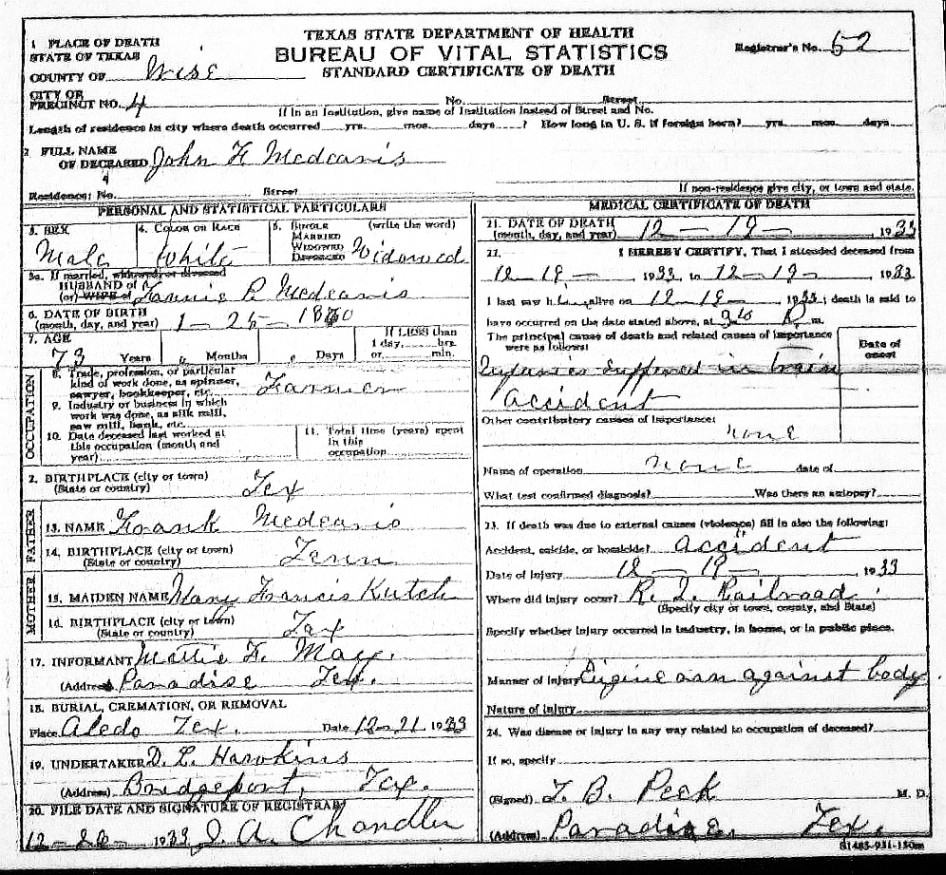 TEXAS STATE DEPARTMENT OF HEALTH
BUREAU OF VITAL STATISTICS
STANDARD CERTIFICATE OF DEATH
Registrar's No. 52
1 PLACE OF DEATH
STATE OF TEXAS
COUNTY OF Wise
CITY OR
PRECINCT NO. 4 No. Street
If in an Institution, give name of Institution instead of Street and No.
Length of residence in city where death occurred yrs. mos. days ? How long in U. S. if foreign born? yrs. mos. days
2 FULL NAME
OF DECEASED John F. Medearis
Residence: No. Street
If non-residence give city, or town and state.
PERSONAL AND STATISTICAL PARTICULARS
3. SEX Male
4. COLOR OR RACE White
5. SINGLE MARRIED WIDOWED DIVORCED (write the word) Widowed
5a. If married, widowed or divorced
HUSBAND of
(or) WIFE of Fannie P. Medearis
6. DATE OF BIRTH
(month, day, and year) 1-25-1860
7. AGE
73 Years Months Days If LESS than 1 day, hrs. or min.
OCCUPATION
8. Trade, profession, or particular
kind of work done, as spinner,
sawyer, bookkeeper, etc. Farmer
9. Industry or business in which
work was done, as silk mill,
saw mill, bank, etc.
10. Date deceased last worked at
this occupation (month and
year)
11. Total time (years) spent
in this
occupation
2. BIRTHPLACE (city or town)
(State or country) Tex
FATHER
13. NAME Frank Medearis
14. BIRTHPLACE (city or town)
(State or country) Tenn
MOTHER
15. MAIDEN NAME Mary Francis Kutch
16. BIRTHPLACE (city or town)
(State or country) Tex
17. INFORMANT Mattie F. May.
(Address Paradise Tex.
18. BURIAL, CREMATION, OR REMOVAL
Place Aledo Tex. Date 12-21 1933
19. UNDERTAKER D. L. Hawkins
(Address) Bridgeport, Tex.
20. FILE DATE AND SIGNATURE OF REGISTRAR
1933 J. A. Chandler
MEDICAL CERTIFICATE OF DEATH
21. DATE OF DEATH
(month, day, and year) 12 - 19 - 1933
22. I HEREBY CERTIFY, That I attended deceased from
12-19- 1933, to 12-19- 1933
I last saw him alive on 12-19- 1933; death is said to
have occurred on the date stated above, at P. m.
The principal cause of death and related causes of importance
were as follows:
Date of
onset
Injuries suffered in train
accident
Other contributory causes of importance:
none
Name of operation none date of
What test confirmed diagnosis? Was there an autopsy?
23. If death was due to external causes (violence) fill in also the following:
Accident, suicide, or homicide? accident
Date of injury 12 - 19 - 1933
Where did injury occur? R. I. Railroad
(Specify city or town, county, and State)
Specify whether injury occurred in industry, in home, or in public place.
Manner of injury Engine ran against body.
Nature of injury
24. Was disease or injury in any way related to occupation of deceased?
If so, specify
(Signed) T. B. Peck M. D.
(Address) Paradise, Tex.